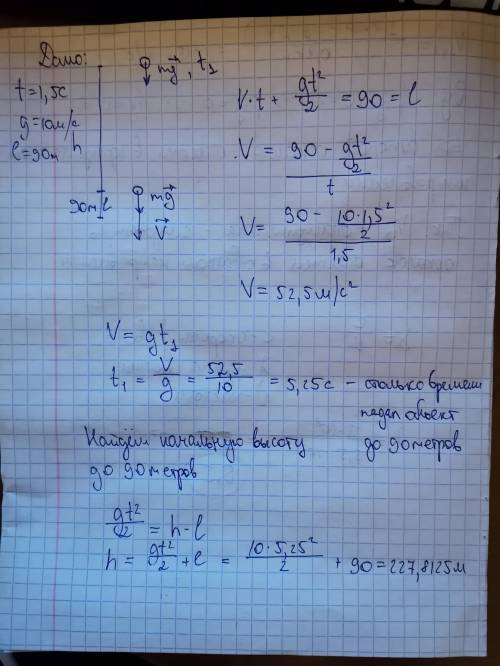 Дано:
t=1,5с
g=10м/с
l=90м
h
mg⃗, t₁
90м l
mg⃗
V⃗
V·t + gt²/2 = 90 = l
V = (90 - gt²/2)/t
V = (90 - 10·1,5²/2)/1,5
V = 52,5м/с²
V = gt₁
t₁ = V/g = 52,5/10 = 5,25с – столько времени
падал объект
до 90 метров
Найдём начальную высоту
до 90 метров
gt²/2 = h-l
h = gt²/2 + l = 10·5,25²/2 + 90 = 227,8125м